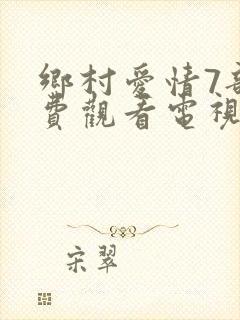 鄉村愛情7部
費觀看電視
宋翠